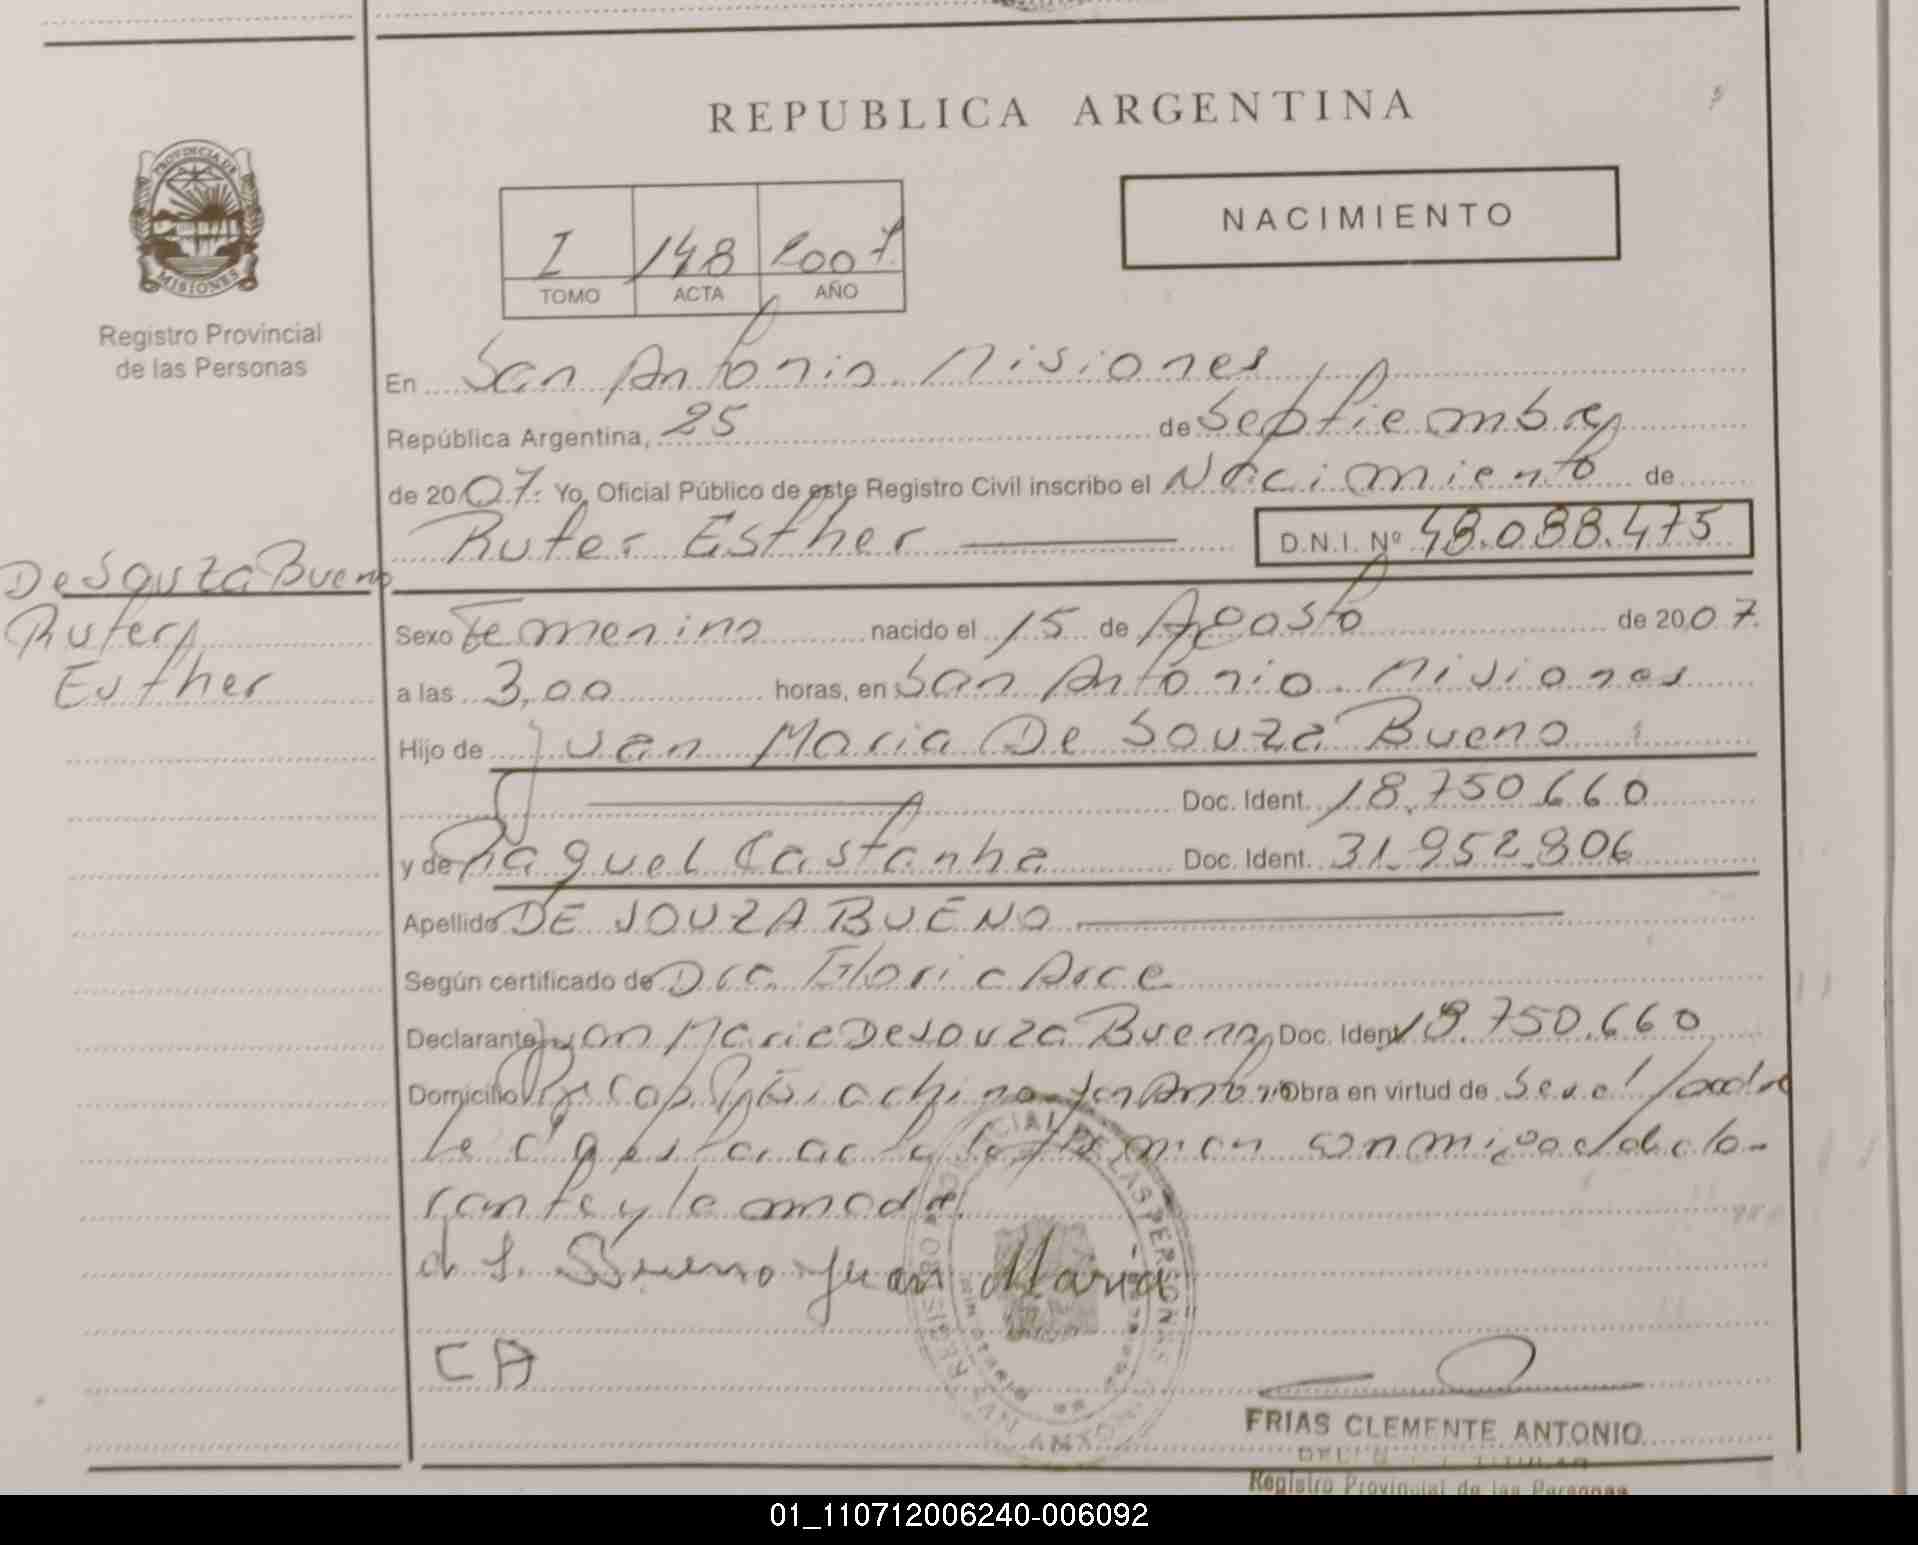 REPUBLICA ARGENTINA
PROVINCIA DE
MISIONES
Registro Provincial
de las Personas
I 148 2007
TOMO ACTA AÑO
NACIMIENTO
En San Antonio. Misiones
República Argentina, 25 de Septiembre
de 2007. Yo, Oficial Público de este Registro Civil inscribo el Nacimiento de
Ruter Esther D.N.I. Nº 48.088.475
De Souza Bueno
Ruter
Esther
Sexo Femenino nacido el 15 de Agosto de 2007.
a las 3,00 horas, en San Antonio. Misiones
Hijo de Juan Maria De Souza Bueno
Doc. Ident. 18.750.660
y de Raquel Castanha Doc. Ident. 31.952.806
Apellido DE SOUZA BUENO
Según certificado de Dra Gloria Arce
Declarante Juan Maria De Souza Bueno Doc. Ident 18.750.660
Domicilio San Antonio Obra en virtud de ser el padre
acta la firman conmigo el decla-
rante y la madre.
d S. Bueno Juan Maria
CA
FRIAS CLEMENTE ANTONIO
TITULAR
Registro Provincial de las Personas
01_110712006240-006092